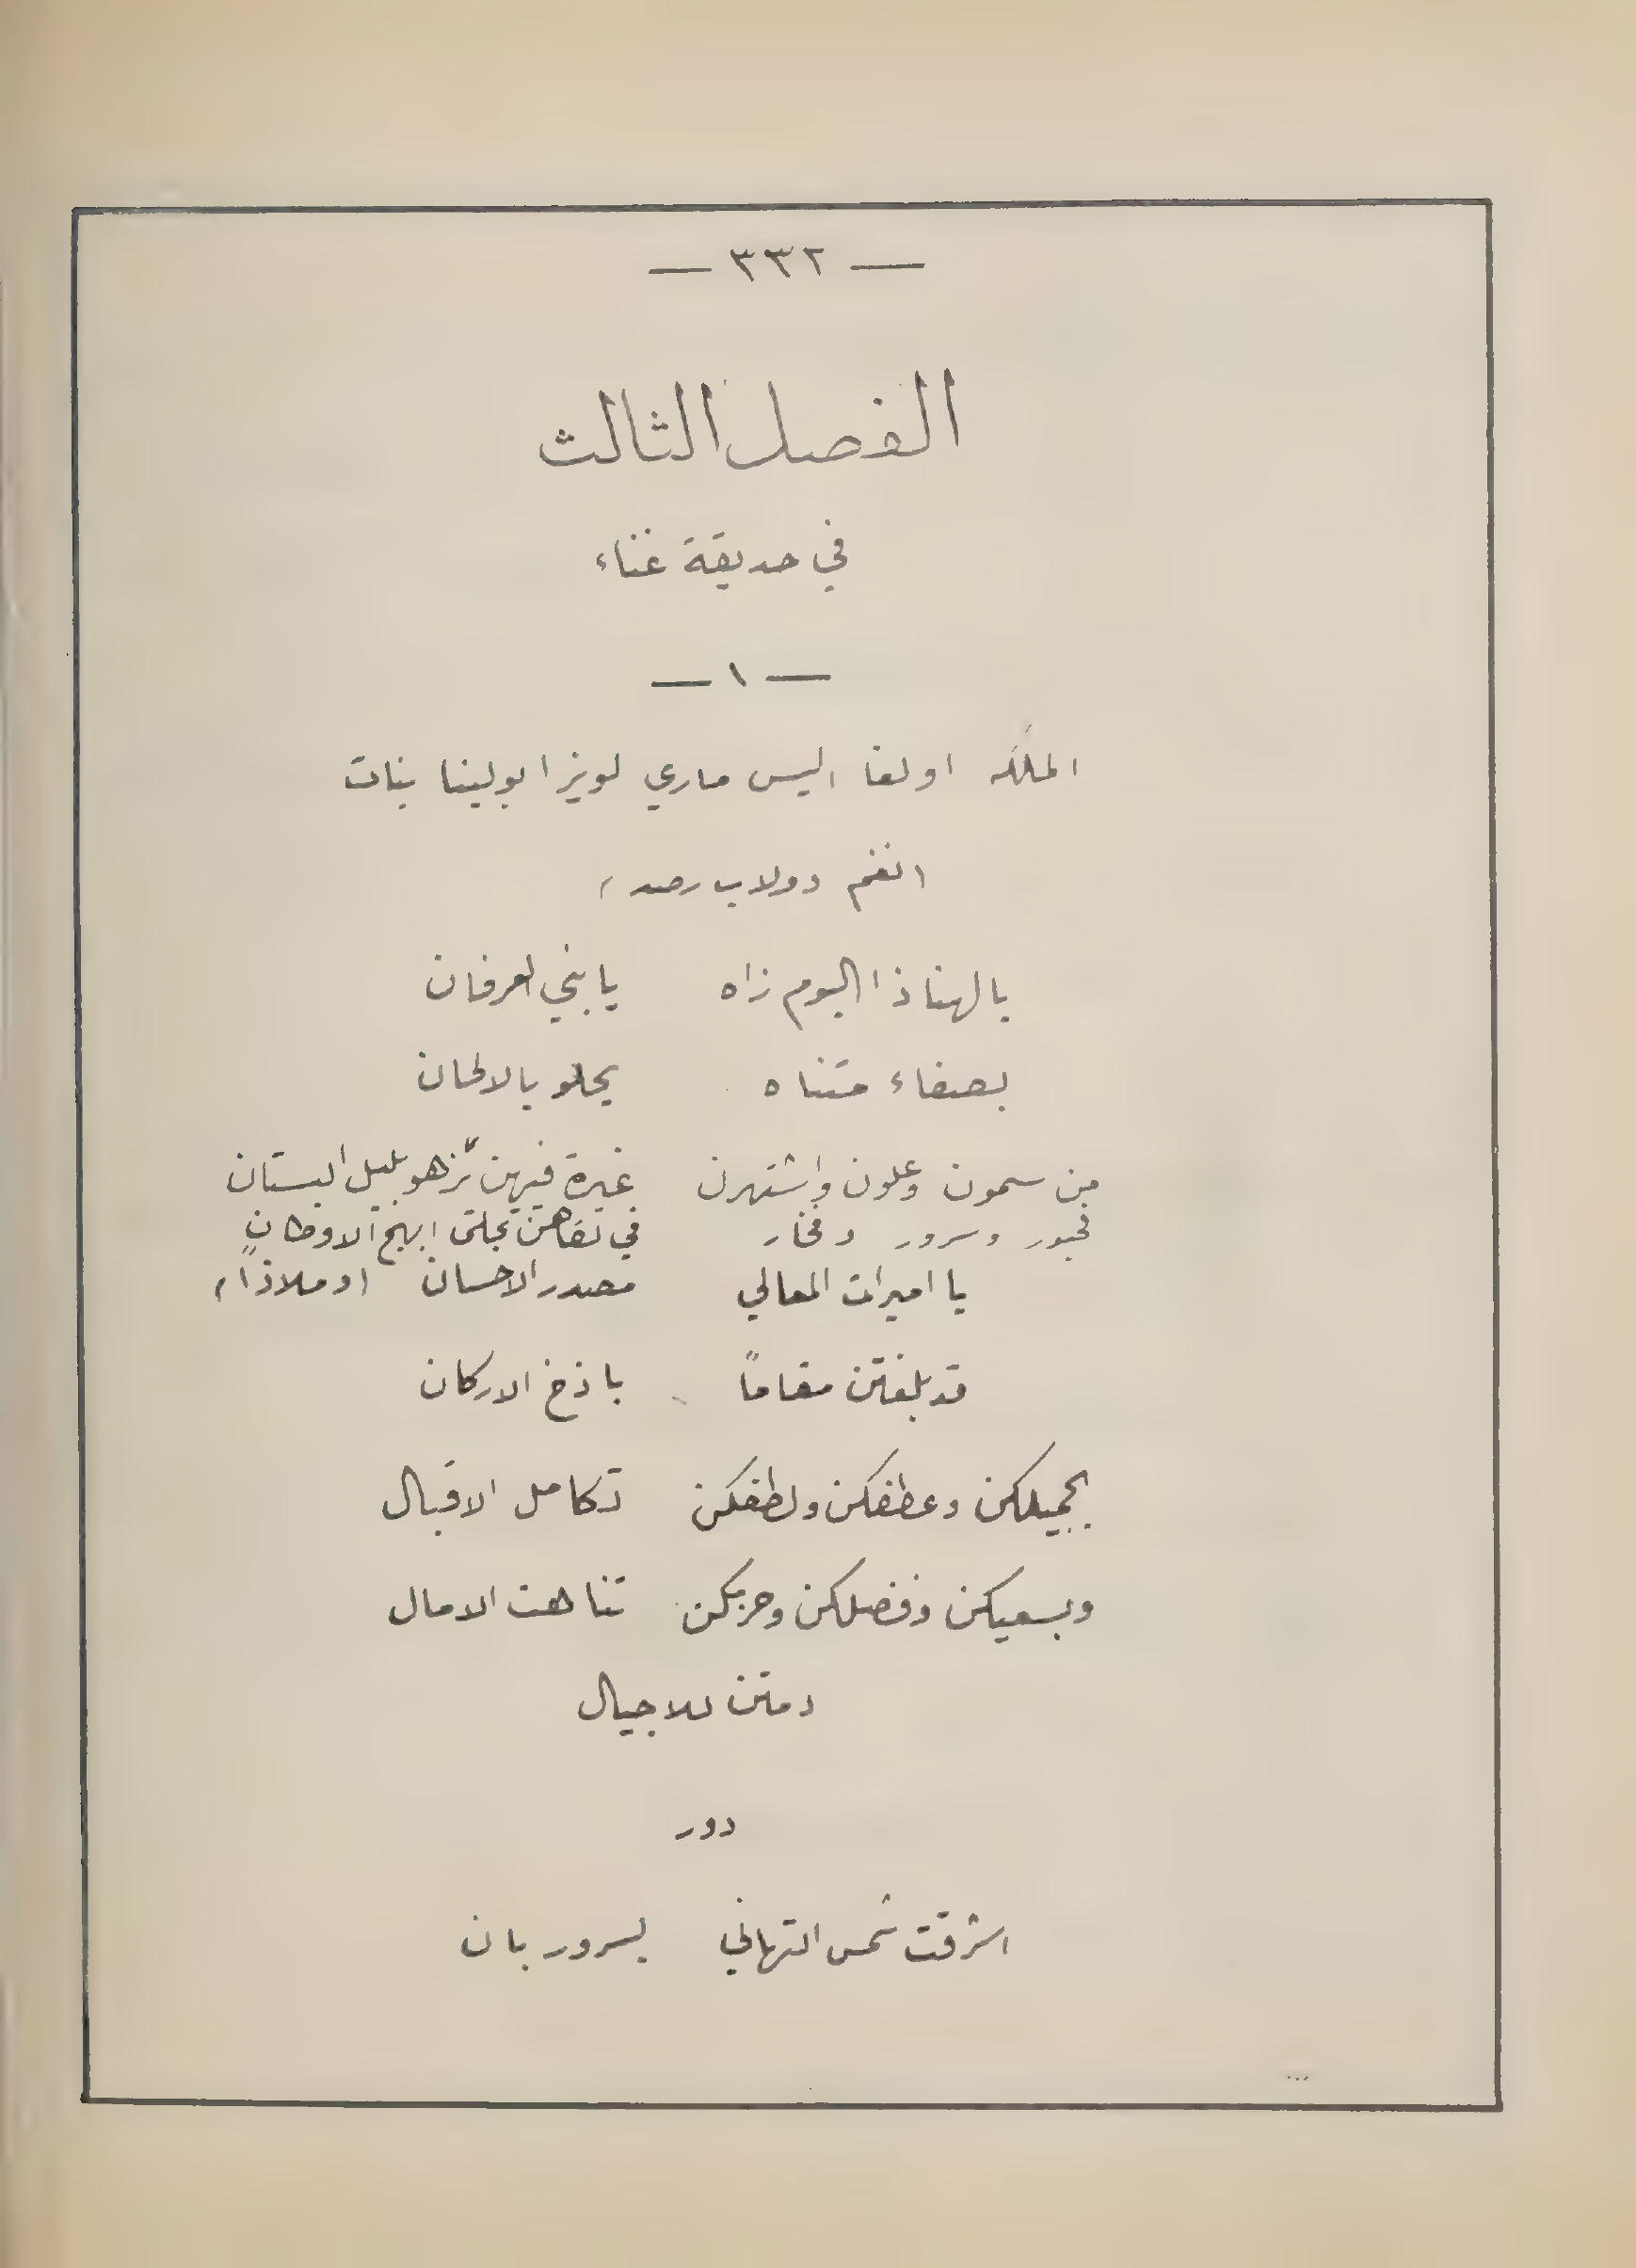 — ٣٣٢ —
الفصل الثالث
في حديقة غناء
— ١ —
الملكه اولغا اليس ماري لويز ابولينا بنات
(نغم دولاب رصد)
بالهنا ذا اليوم زاه يا بني العرفان
بصفاء متناه يحلو بالالحان
من سمون وعلون واشتهرن غيرة فيهن تزهو بلبل البستان
فحبور وسرور وفخار في تقاهن تجلى ابهج الاوطان
يا اميرات المعالي مصدر الاحسان (او ملاذاً)
قد بلغتن مقاماً باذخ الاركان
بجميلكن وعطفكن ولطفكن تكامل الاقبال
وبسعيكن وفضلكن وحزمكن تناهت الامال
دمتن للاجيال
دور
اشرقت شمس التهاني بسرور بان